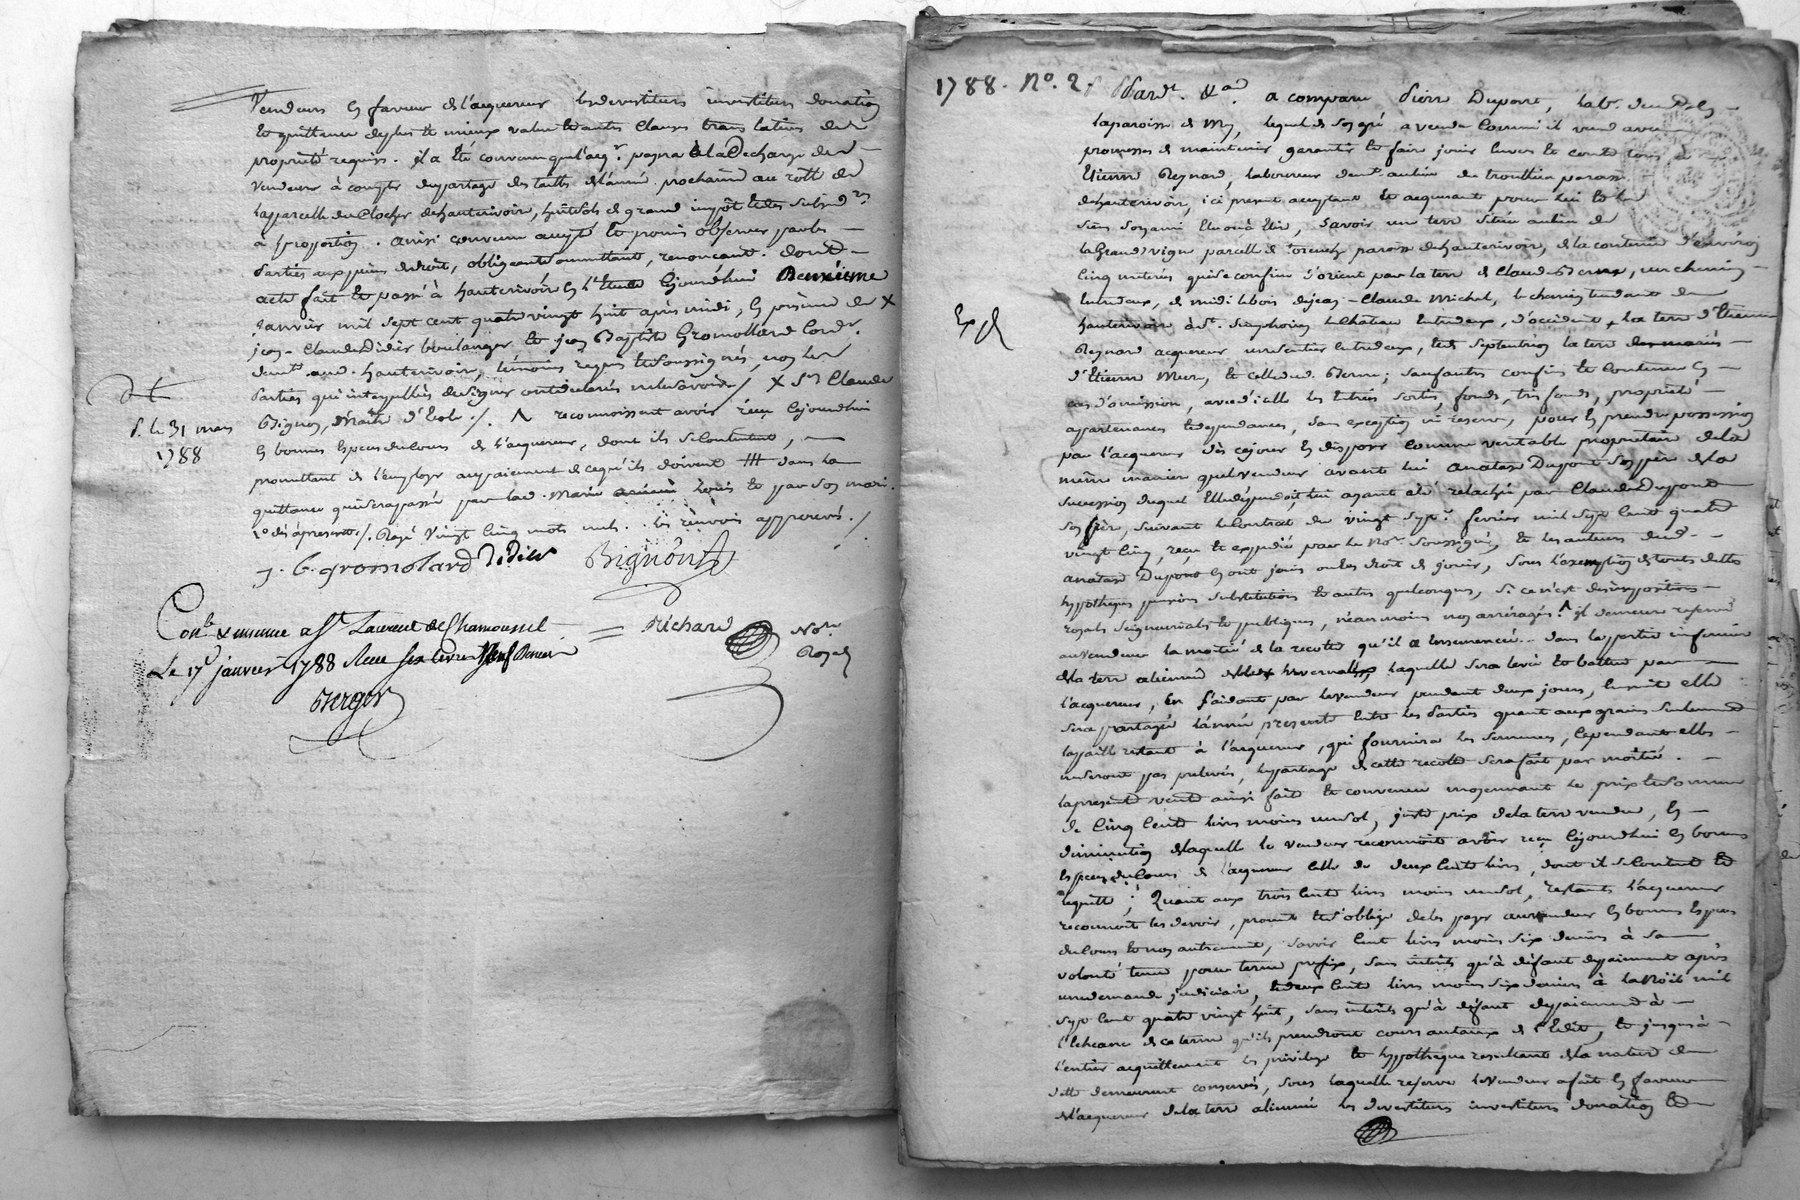 Vendeurs en faveur de l'acquereur les devestitures investitures donation
et quittance de plus et mieux value et autres clauses translatives de
propriété requises. il a été convenu que l'acqr. payera à la Decharge des
vendeurs à compter du partage des tailles de l'année prochaine au rolle de
la parcelle du Clocher de hauterivoire, huit sols de grand impôt et des subsidres
à proportion. ainsi convenu accepté et promis observer par les
Parties aux peines de droit, obligeant soumettant, renonçant. dont
acte fait et passé à hauterivoire en l'Etude cejourdhui Deuxieme
Janvier mil sept cent quatre vingt huit après midi, en présence de X
jean-Claude Didier boulanger et jean Baptiste Gromollard Cordr.
demt. aud. hauterivoire, témoins requis et soussignés, non les
Parties qui interpellées de signer ont declaré ne le savoir ./. X Sr. Claude
Bignon, Maitre d'Ecole ./. ^ reconnoissent avoir reçu cejourdhui
en bonnes especes du cours de l'acquereur, dont ils se contentent,
promettant de l'employer au paiement de ce qu'ils doivent dans la
quittance qui sera passée par lad. Marie Louis et par son mari.
dès à present ./. Rayé vingt cinq mots nuls. les renvois approuvés ./.
S. le 31 mars
1788
J. B. gromolard Didier Bignon
Conlé & insinué a St. Laurent de Chamousset
Le 17e janvier 1788 Reçu six livres neuf Deniers
Berger
Richard Nore
Royal
1788. No. 2.
Pardt. &a. a comparu Pierre Dupont, labr. demt. en
la paroisse de My, lequel de son gré a vendu comme il vend avec
promesses de maintenir garantir et faire jouir envers et contre tous à
Etienne Reynard, laboureur demt. au lieu de trouthieu paroisse
de hauterivoire, ici present acceptant et acquerant pour lui et les
siens son ami Elu ou à Elire, Savoir une terre située au lieu de
la Grand vigne parcelle de torenche paroisse de hauterivoire, de la contenue d'environ
Cinq meterées qui se confine d'orient par la terre de Claude Berne, un chemin
entredeux, de midi le bois de jean-Claude Michel, le chemin tendant de
Exp
hauterivoire à St. Simphorien le Château entredeux, d'occident la terre d'Etienne
Reynard acquereur un sentier entredeux, et de septentrion la terre des mariés
d'Etienne Mure, et celle dud. Berne; sauf autres confins et contenue en
cas d'omission, avec d'icelle les entrées sorties, fonds, tres fonds, propriété
apartenances et dependances, sans exception ni reserve, pour en prendre possession
par l'acquereur dès cejour en disposer comme veritable propriétaire de la
même maniere que le vendeur avant lui anatase Dupont son père de la
succession duquel Elle dépendoit, lui ayant été relachée par Claude Dupont
son frère, suivant le Contrat du vingt sept. fevrier mil sept Cent quatre
vingt cinq, reçu et expedié par le Nore. Soussigné, et les auteurs dud.
anatase Dupont en ont joui ou eu droit de jouir, sous l'exemption de toute dette
hypotheques pensions substitutions et autres quelconques, si ce n'est des impositions
royales seigneuriales et publiques, néanmoins non arréragés. ^ il demeure reservé
au vendeur la moitié de la recolte qu'il a Ensemencée dans la partie inferieure
de la terre alienée laquelle sera levée et battue par
l'acquereur, En s'aidant par le vendeur pendant deux jours, ensuite elle
sera partagée l'année presente entre les Parties quant aux grains seulement
la paille restant à l'acquereur, qui fournira les semences, Cependant elles
ne seront pas prelevées, le partage de cette recolte sera fait par moitié.
la presente vente ainsi faite et convenue moyennant le prix et somme
de Cinq Cent livres moins un sol, juste prix de la terre vendue, en
diminution de laquelle le vendeur reconnoit avoir reçu cejourdhui en bonnes
Especes du Cours de l'acquereur celle de deux cent livres, dont il se contente et
le quitte; Quant aux trois cent livres moins un sol, restantes l'acquereur
reconnoit les devoir, promet et s'oblige de les payer au vendeur en bonnes Especes
du Cours et non autrement, savoir Cent livres moins six deniers à sa
volonté tenue pour terme prefix, sans interêts qu'à défaut de paiement après
une demande judiciaire, et deux cent livres moins six deniers à la Noël mil
sept cent quatre vingt huit, sans interêts qu'à défaut de paiement à
l'échéance de ce terme qu'ils prendront cours au taux de l'Edit, et jusqu'à
l'entier acquittement les privilege et hypotheque resultants de la nature de
dette demeurent conservés, sous laquelle reserve le Vendeur a fait en faveur
de l'acquereur de la terre alienée les devestitures investitures donation et